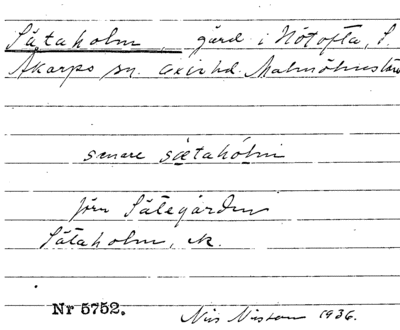 Sätaholm, gård i Nötofta, S.
Åkarps sn. Oxie hd. Malmöhus län
senare sœtahólm
förr Sätegården
Sätaholm, N.
Nr 5752. Nils Nilsson 1936.